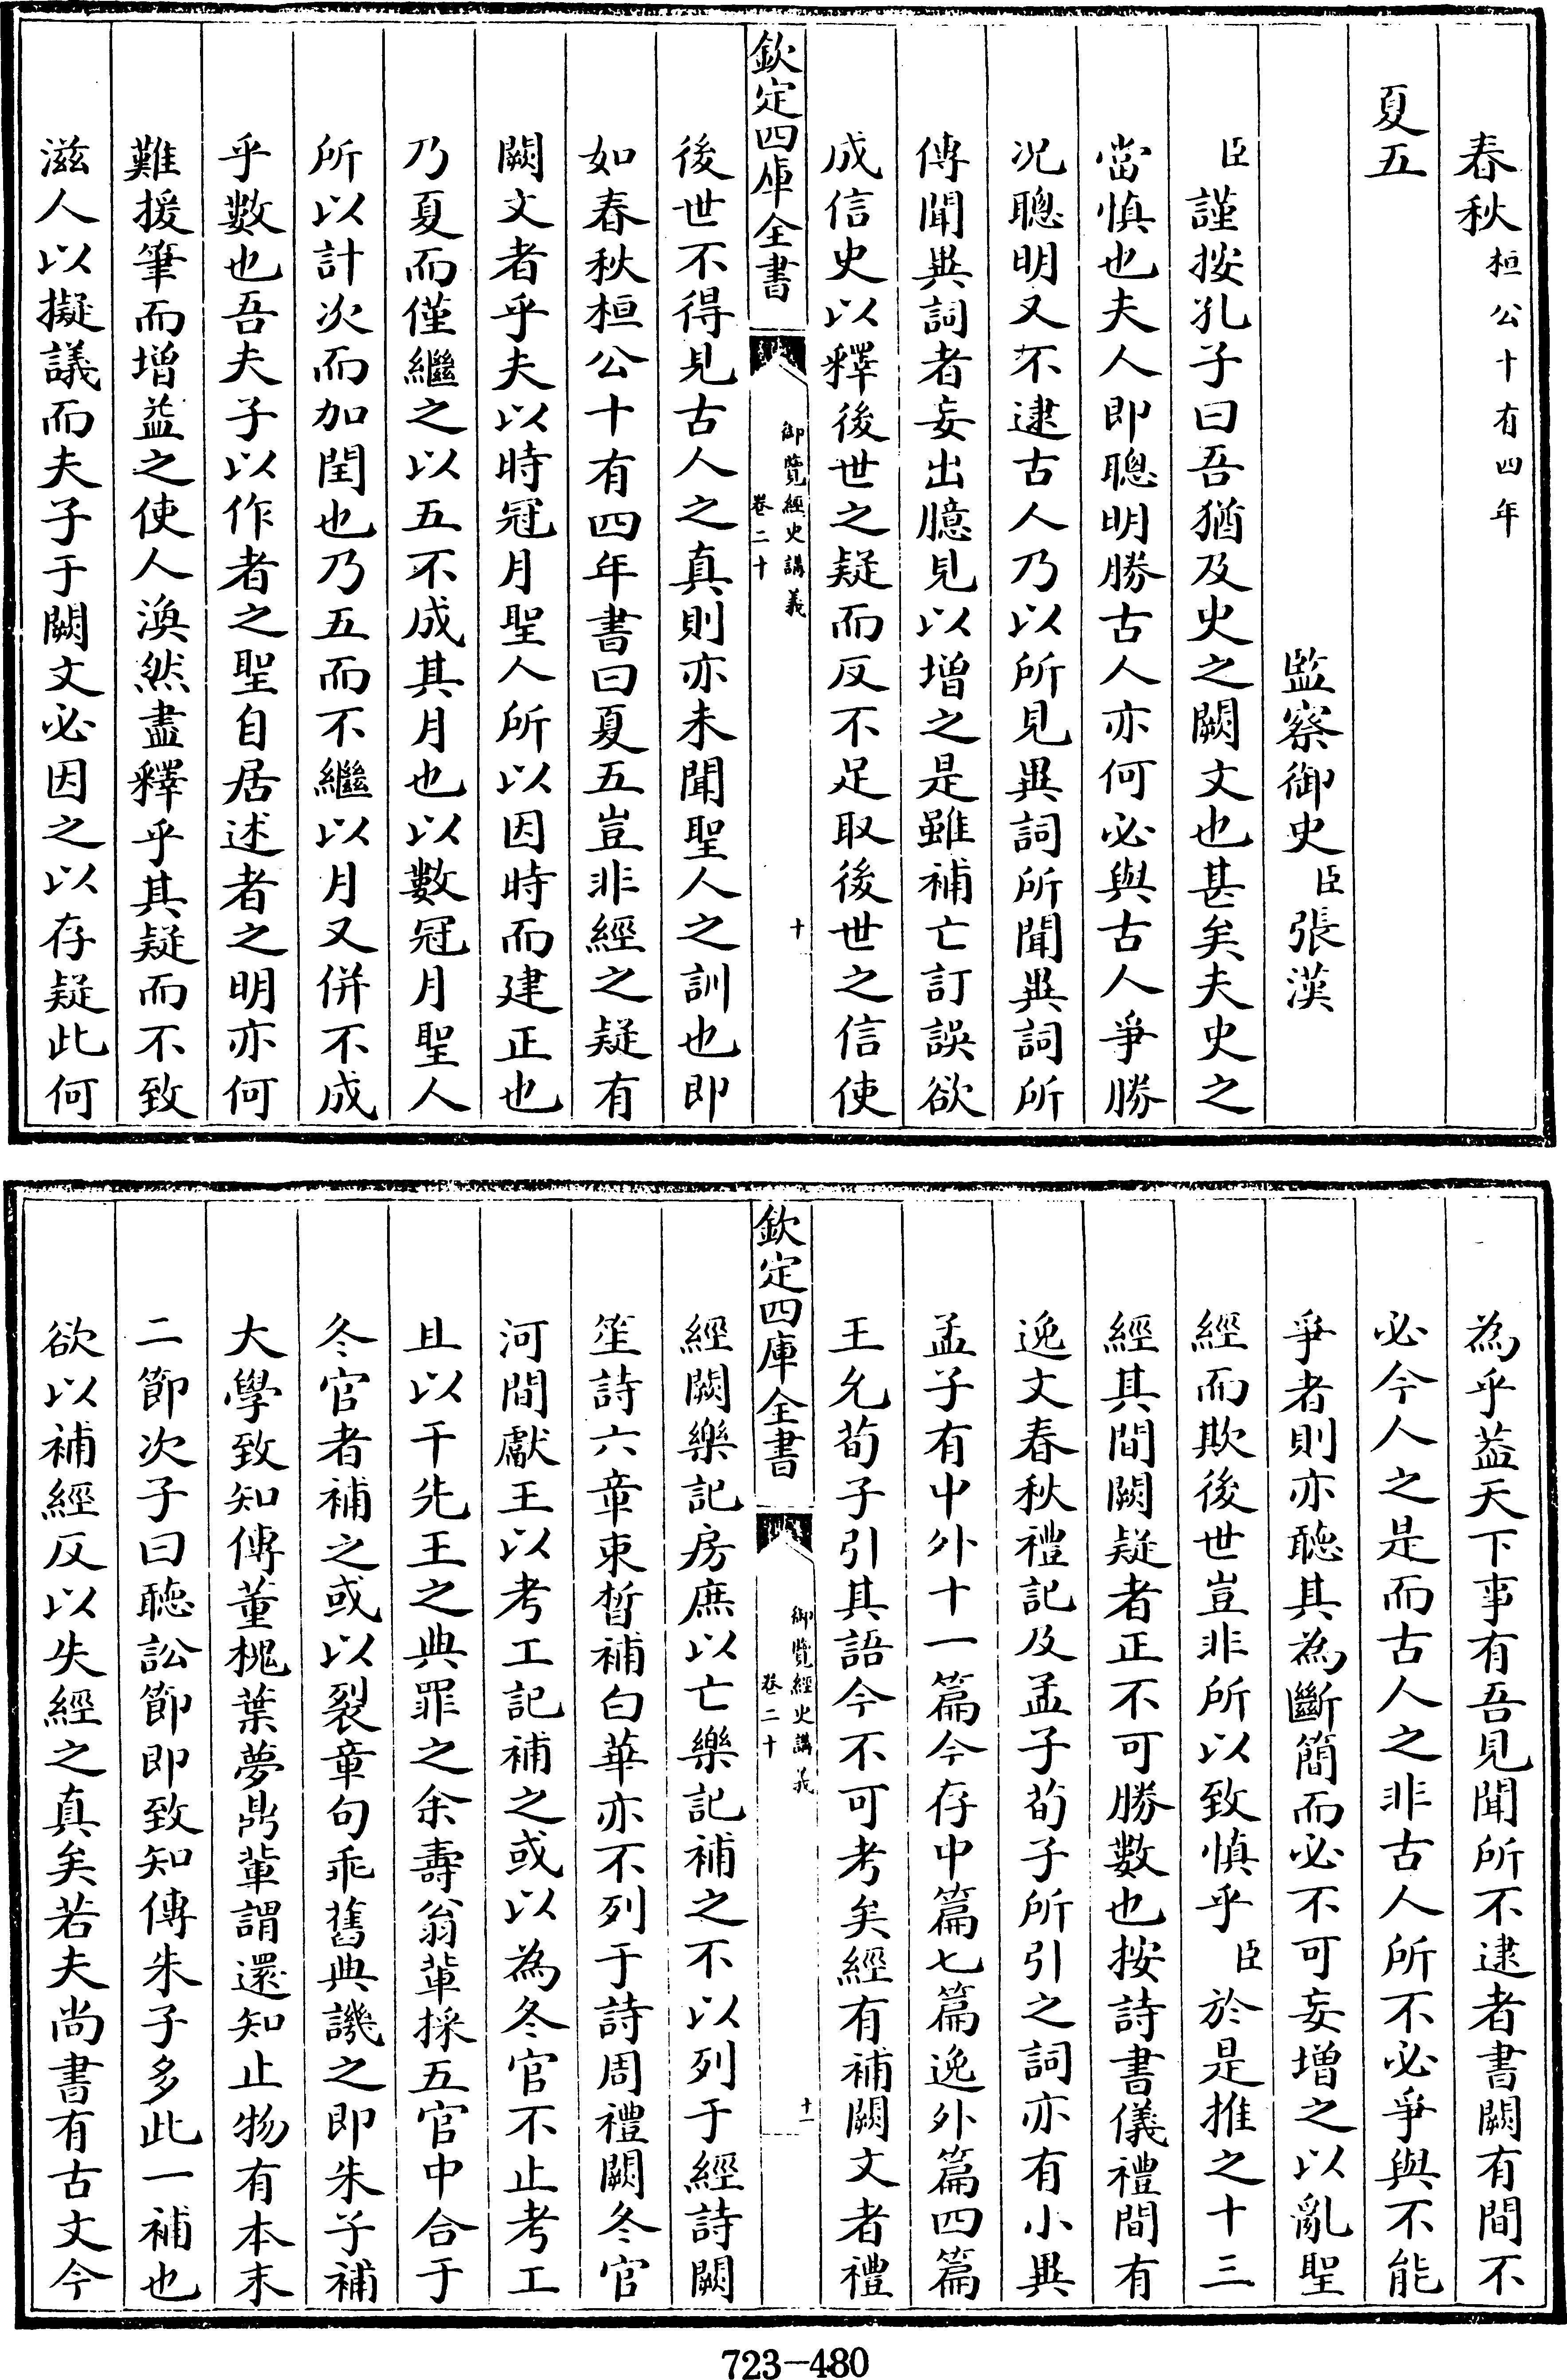 春秋桓公十有四年
夏五
監察御史臣張漢
臣謹按孔子曰吾猶及史之闕文也甚矣夫史之
當慎也夫人即聰明勝古人亦何必與古人爭勝
况聰明又不逮古人乃以所見異詞所聞異詞所
傳聞異詞者妄出臆見以增之是雖補亡訂誤欲
成信史以釋後世之疑而反不足取後世之信使
欽定四庫全書
御覽經史講義
卷二十
十
後世不得見古人之真則亦未聞聖人之訓也即
如春秋桓公十有四年書曰夏五豈非經之疑有
闕文者乎夫以時冠月聖人所以因時而建正也
乃夏而僅繼之以五不成其月也以數冠月聖人
所以計次而加閏也乃五而不繼以月又併不成
乎數也吾夫子以作者之聖自居述者之明亦何
難援筆而增益之使人渙然盡釋乎其疑而不致
滋人以擬議而夫子于闕文必因之以存疑此何
為乎葢天下事有吾見聞所不逮者書闕有間不
必今人之是而古人之非古人所不必爭與不能
爭者則亦聽其為斷簡而必不可妄增之以亂聖
經而欺後世豈非所以致慎乎臣於是推之十三
經其間闕疑者正不可勝數也按詩書儀禮間有
逸文春秋禮記及孟子荀子所引之詞亦有小異
孟子有中外十一篇今存中篇七篇逸外篇四篇
王允荀子引其語今不可考矣經有補闕文者禮
欽定四庫全書
御覽經史講義
卷二十
十一
經闕樂記房庶以亡樂記補之不以列于經詩闕
笙詩六章束晳補白華亦不列于詩周禮闕冬官
河間獻王以考工記補之或以為冬官不止考工
且以干先王之典罪之余壽翁輩採五官中合于
冬官者補之或以裂章句乖舊典譏之即朱子補
大學致知傳董槐葉夢鼎輩謂還知止物有本末
二節次子曰聽訟節即致知傳朱子多此一補也
欲以補經反以失經之真矣若夫尚書有古文今
723-480